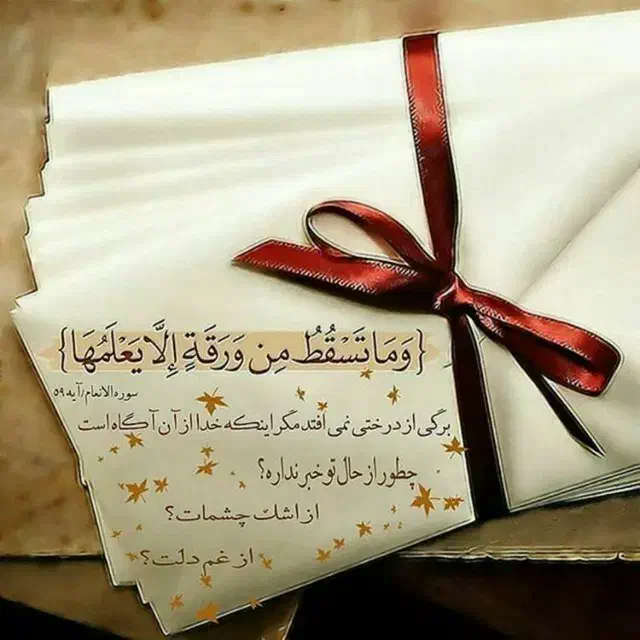 {وَمَا تَسْقُطُ مِن وَرَقَةٍ إِلَّا يَعْلَمُهَا}
سوره الانعام/آیه ۵۹
برگی از درختی نمی افتد مگر اینکه خدا از آن آگاه است
چطور از حال تو خبر نداره؟
از اشک چشمات؟
از غم دلت؟